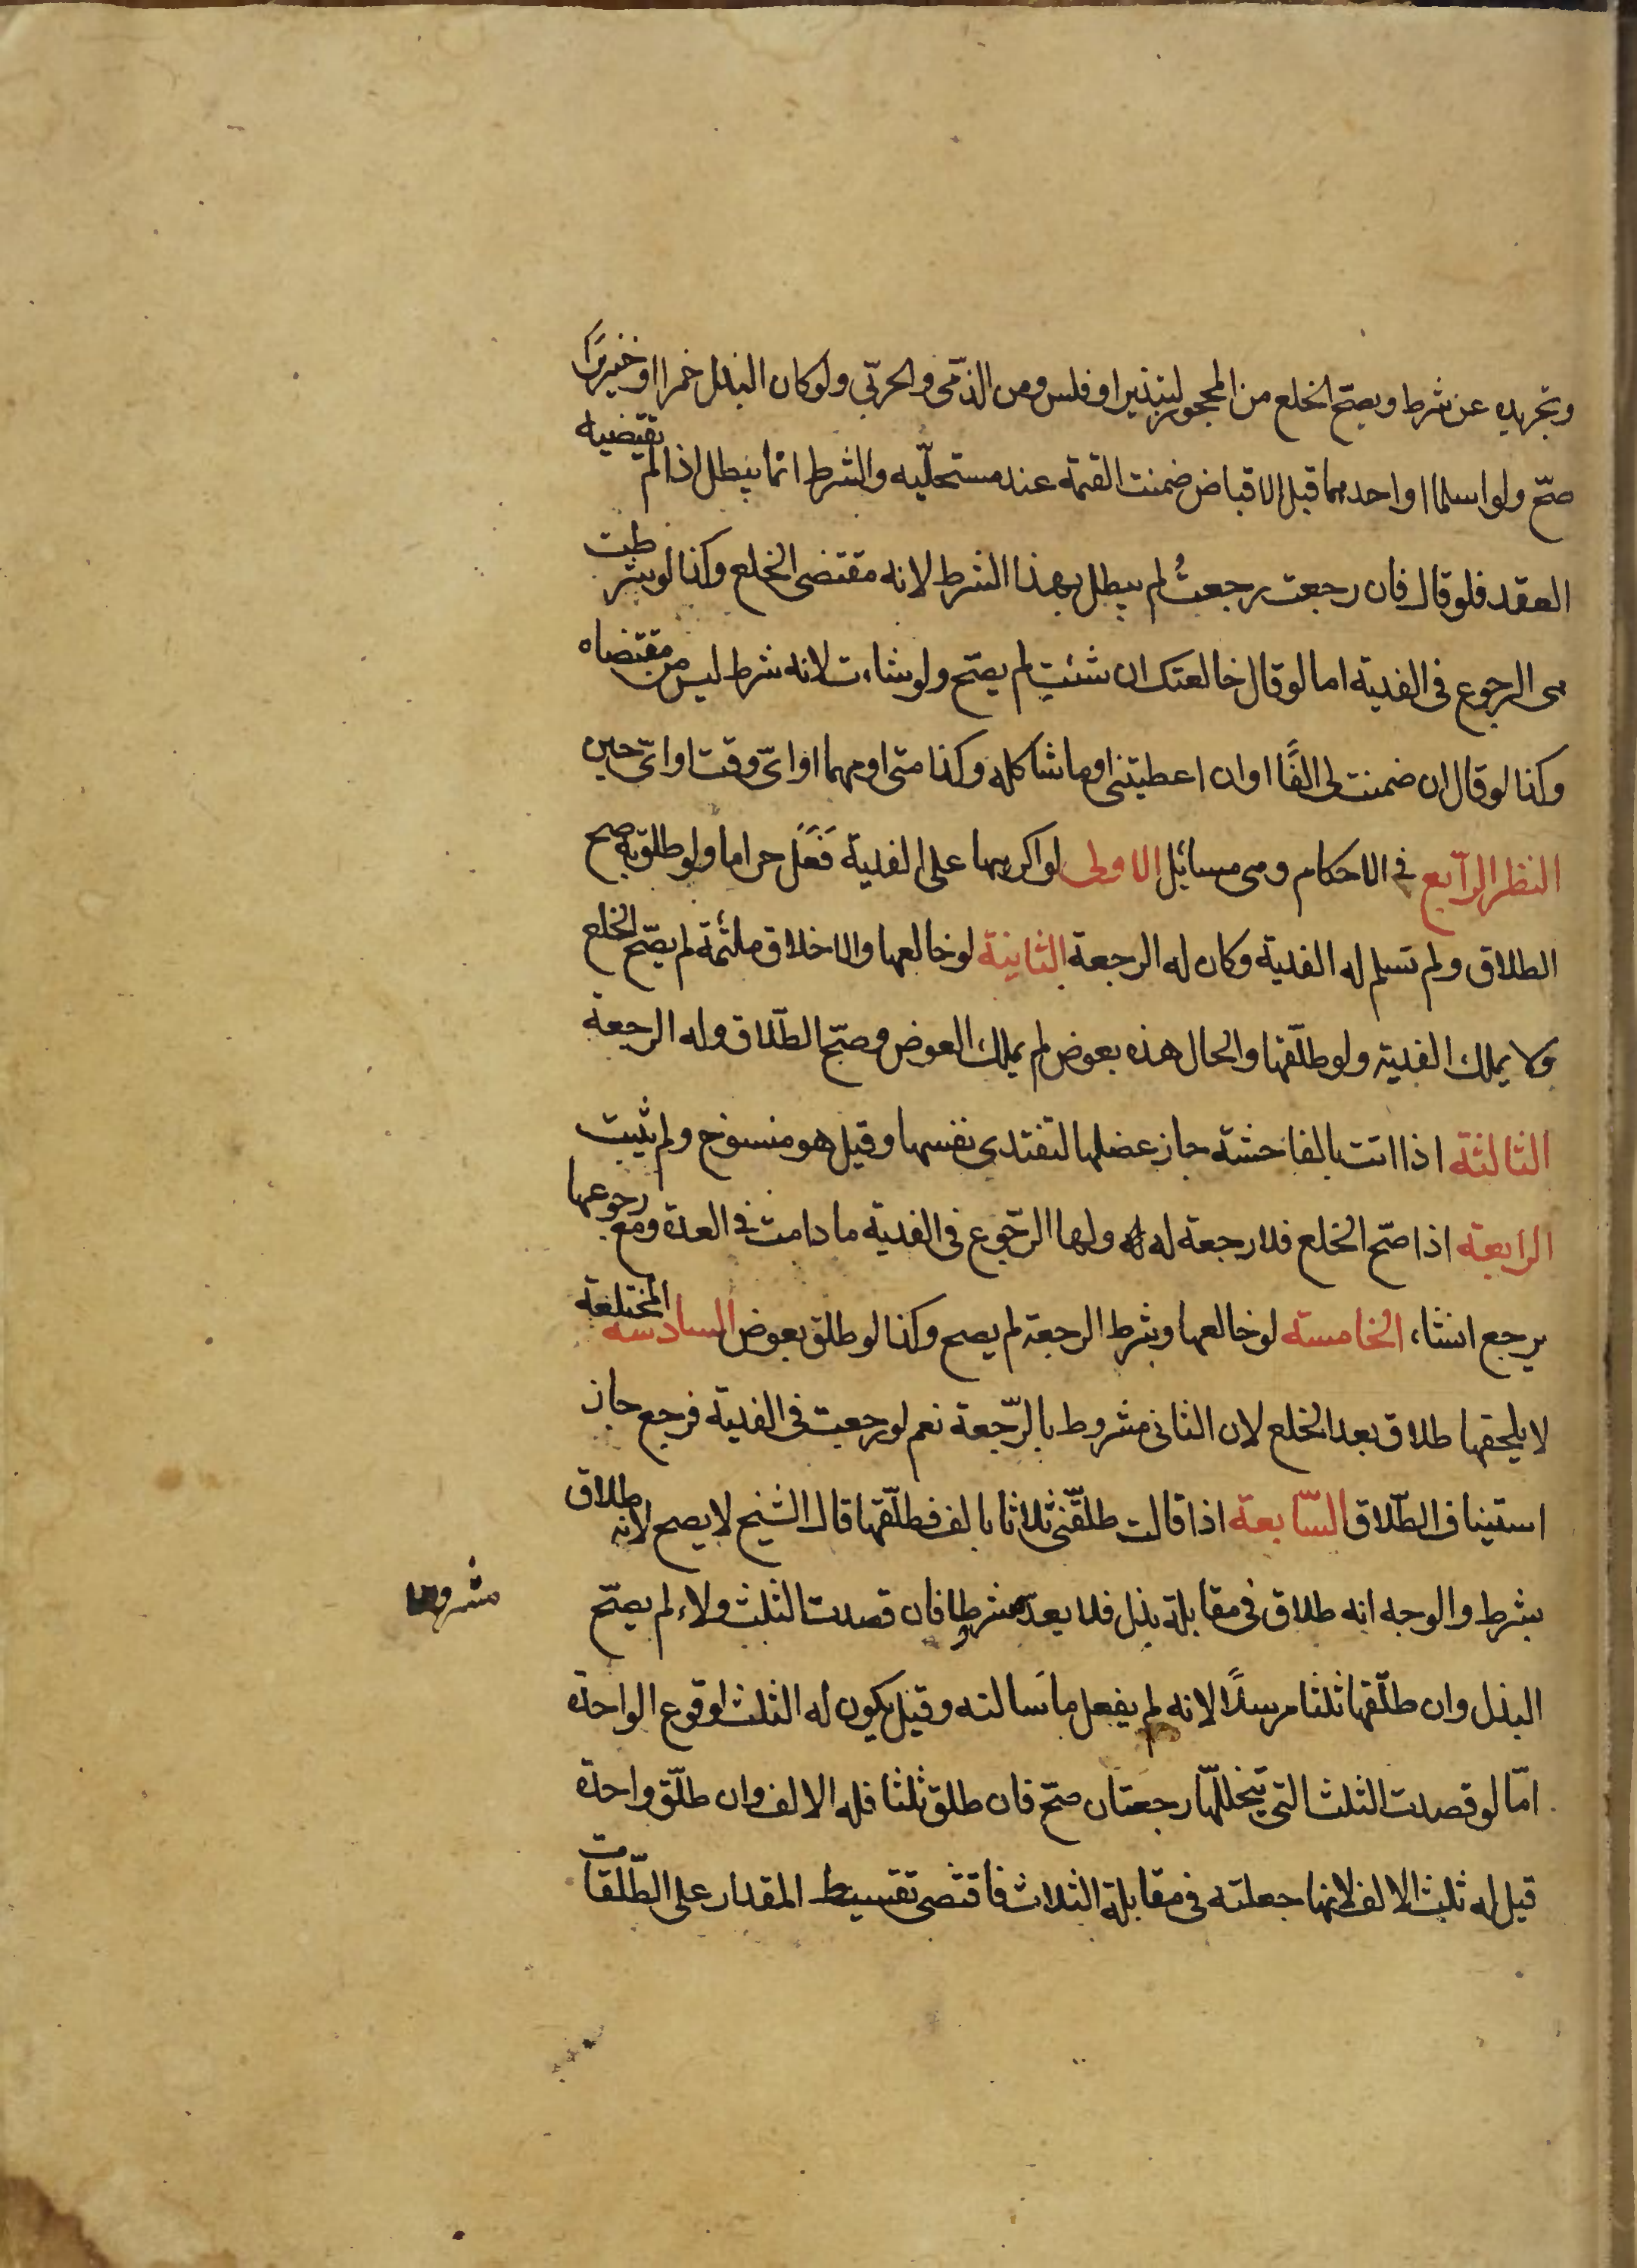 وتجريده عن شرط ويصحّ الخلع من المحجور لتبذير او فلس ومن الذّمى والحربّى ولو كان البذل خمرا او خنزيرًا
صحّ ولو اسلما او احدهما قبل الاقباض ضمنت القيمة عند مستحلّيه والشرط انما يبطل اذا لم يقتضيه
العقد فلو قال فان رجعت رجعتُ لم يبطل بهذا الشرط لانه مقتضى الخلع وكذا لو شرطت
هى الرجوع فى الفدية اما لو قال خالعتك ان شئتِ لم يصحّ ولو شاءت لانه شرط ليس من مقتضاه
وكذا لو قال ان ضمنت لى الفًا او ان اعطيتنى او ما شاكله وكذا متى او مهما او اىّ وقت او اىّ حين
النظر الرّابع فى الاحكام وهى مسائل الاولى لو اكرهها على الفدية فَعَلَ حراما ولو طلق به صح
الطلاق ولم تسلم له الفدية وكان له الرجعة الثانية لو خالعها والاخلاق ملتئمة لم يصّح الخلع
ولا يملك الفدية ولو طلّقها والحال هذه بعوض لم يملك العوض وصحّ الطّلاق وله الرجعة
الثالثة اذا اتت بالفاحشة جاز عضلها لتفتدى نفسها وقيل هو منسوخ ولم يثبت
الرابعة اذا صّح الخلع فلا رجعة له ولها الرّجوع فى الفدية ما دامت فى العدة ومع رجوعها
يرجع انشاء الخامسة لو خالعها وشرط الرجعة لم يصح وكذا لو طلق بعوض السادسة المختلعة
لا يلحقها طلاق بعد الخلع لان الثانى مشروط بالرّجعة نعم لو رجعت فى الفدية فرجع جاز
استيناف الطّلاق السّابعة اذا قالت طلقّنى ثلاثا بالف فطلّقها قال الشيخ لا يصح لانه طلاق
بشرط والوجه انه طلاق فى مقابلة بذل فلا يعدّ شرطا فان قصدت الثلث ولاء لم يصّح
مشروط
البذل وان طلّقها ثلثا مرسلًا لانه لم يفعل ما سَالته وقيل يكون له الثلث لوقوع الواحدة
امّا لو قصدت الثلث التى يتخللّها رجعتان صّح فان طلق ثلثا فله الالف وان طلّق واحدة
قيل له ثلث الالف لانها جعلته فى مقابلة الثلاث فاقتضى تقسيط المقدار على الطّلقات